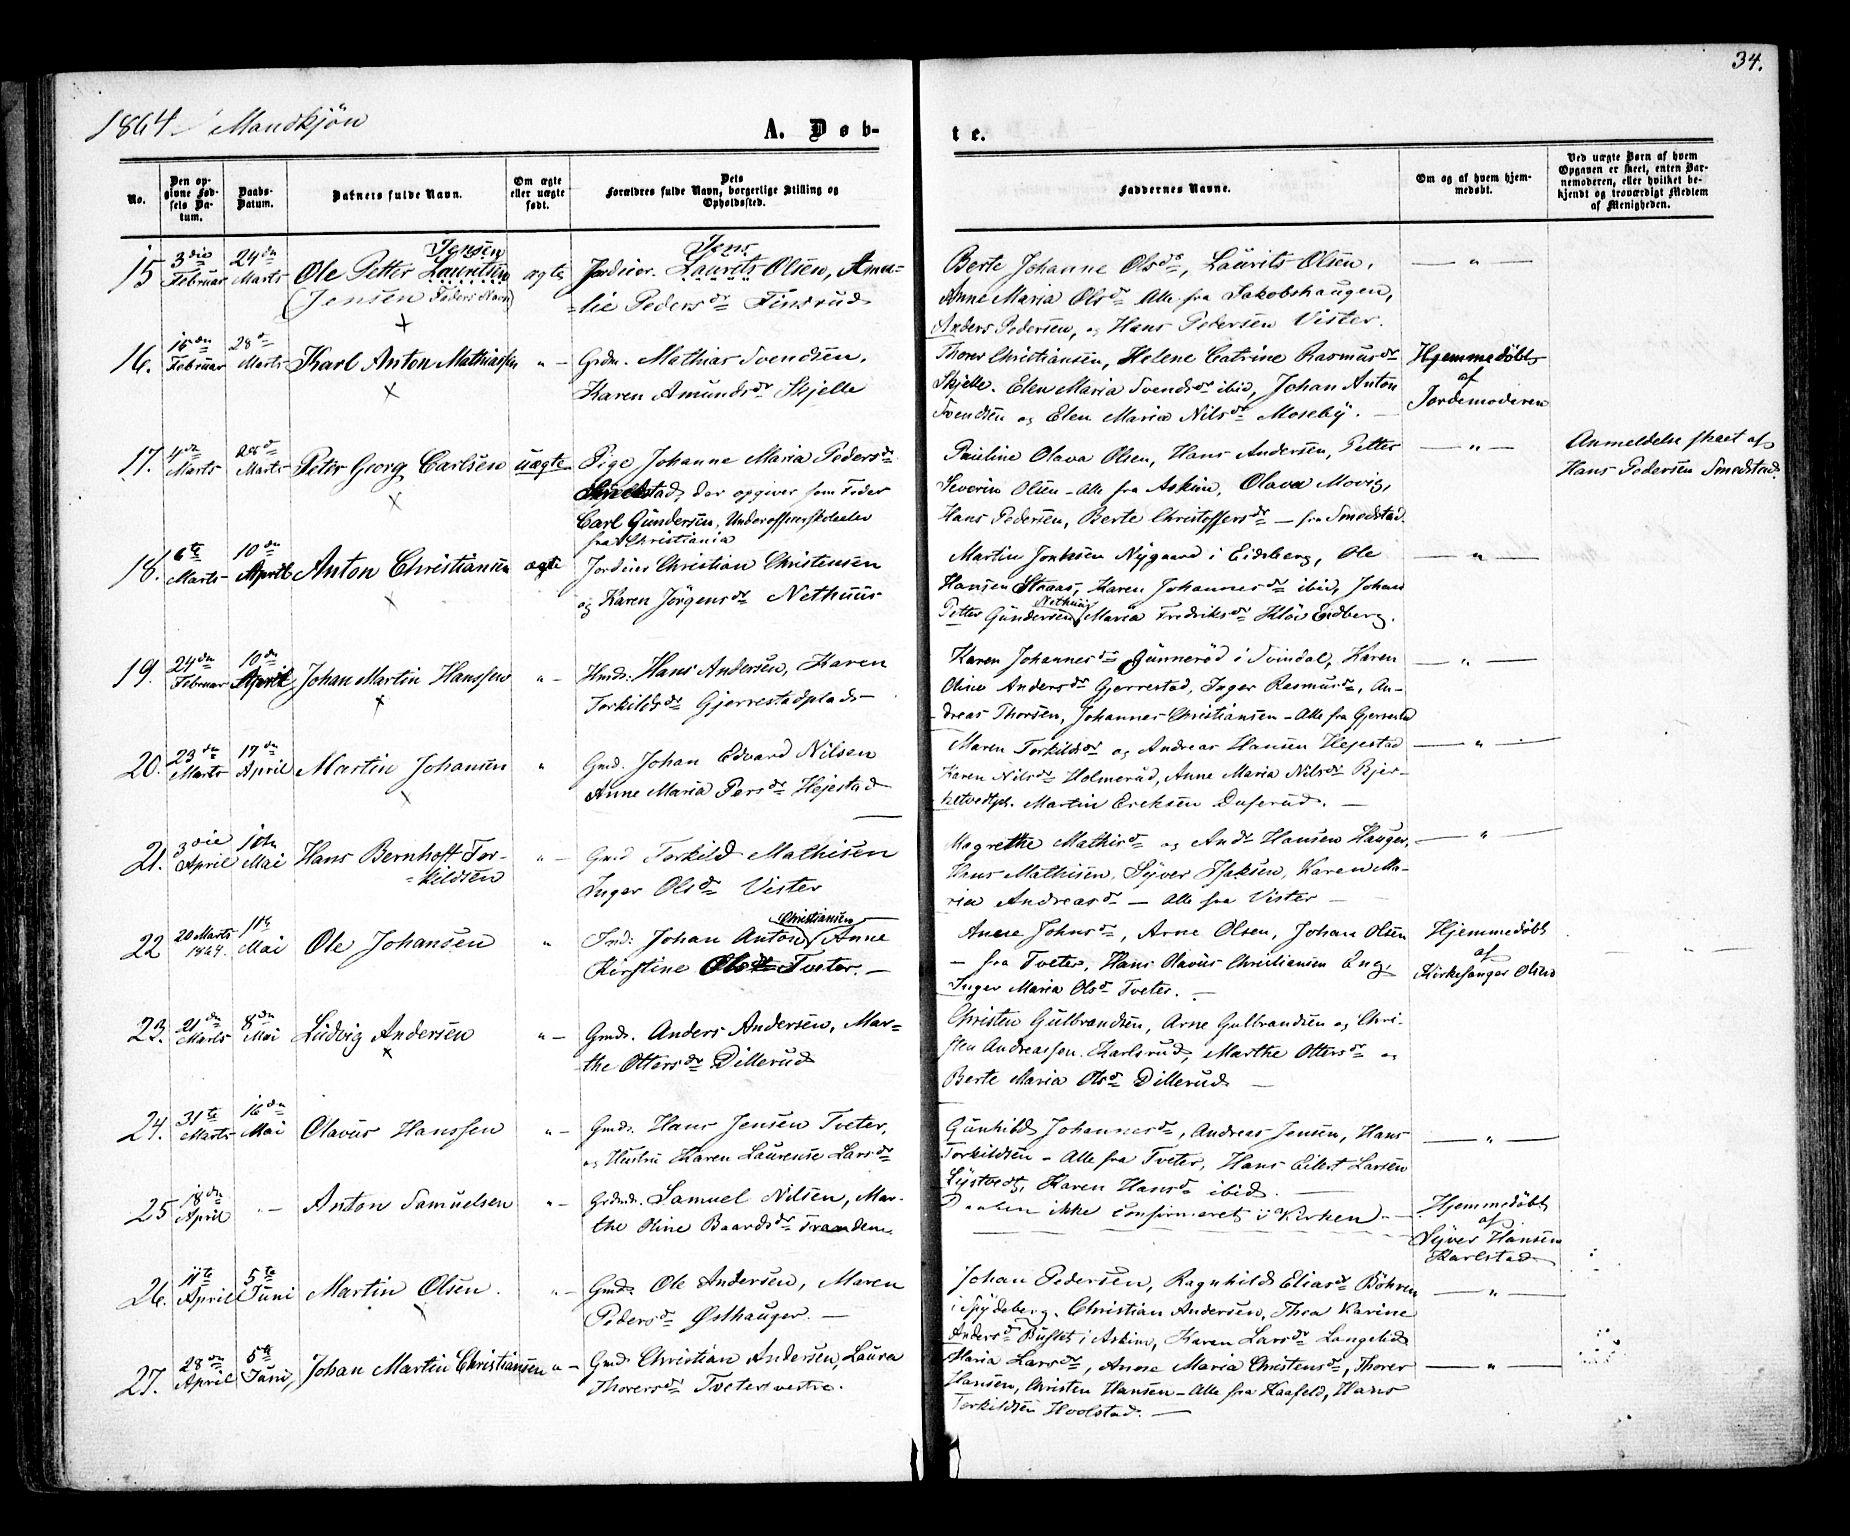 34.
1864 Mandkjøn
A. Døb-
te.
No.
Den op-
givne Fød-
sels Da-
tum.
Daabs-
Datum.
Barnets fulde Navn.
Om ægte
eller uægte
født.
Dets
Forældres fulde Navn, borgerlige Stilling og
Opholdssted.
Faddernes Navne.
Om og af hvem hjem-
medøbt.
Ved uægte Børn af hvem
Opgaven er skeet, enten Bar-
nemoderen, eller hvilket be-
kjendt og troværdigt Medlem
af Menigheden.
15 3die Februar 24de Marts Ole Petter Lauritsen Jensen
(Jensen Faders Navn)
ægte
Jordeier. Laurits Jens Olsen, Ama-
lie Pedersdr Finsrud
Berte Johanne Olsdr, Laurits Olsen,
Anne Maria Olsdr Alle fra Jakobshaugen,
Anders Pedersen, og Hans Pedersen Vister.
— " —
16. 15de Februar 28de Marts Karl Anton Mathiassen
" —
Grdm. Mathias Svendsen,
Karen Amundsdr Skjelle
Thorer Christiansen, Helene Catrine Rasmusdr
Skjelle. Elen Maria Svendsdr ibid, Johan Anton
Svendsen og Elen Maria Nilsdr Moseby. —
Hjemmedøbt
af
Jordemoderen
17. 4de Marts 28de Marts Peter Georg Carlsen
uægte
Pige Johanne Maria Pedersdr
Smedstad, der opgiver som Fader
Carl Gundersen, Underofficerskoleelev
fra Christiania
Pauline Olava Olsen, Hans Andersen, Petter
Severin Olsen – Alle fra Askim, Olava Movig,
Hans Pedersen, Berte Christoffersdr – fra Smedstad.
— " —
Anmeldelse skeet af
Hans Pedersen Smedstad.
18. 6te Marts 10de April Anton Christiansen
ægte
Jordeier Christian Christensen
og Karen Jørgensdr Nethuus
Martin Nygaard i Eidsberg, Ole
Hansen Straas, Karen Johannesdr ibid, Johan
Petter Gundersen Nethuus, Maria Fredriksdr Eidberg.
— " —
19. 24de Februar 10de April Johan Martin Hanssen
" —
Hmd: Hans Andersen, Karen
Torkildsdr Gjerrestadplads
Karen Johannesdr Gunnerød i Svindal, Karen
Oline Andersdr Gjerrestad, Inger Rasmusdr, An-
dreas Thorsen, Johannes Christiansen – Alle fra Gjerrestad
— " —
20. 23de Marts 17de April Martin Johansen
"
Gmd. Johan Edvard Nilsen
Anne Maria Persdr Hejestad
Maren Torkildsdr og Andreas Hansen Hejestad
Karen Nilsdr Holmerud, Anne Maria Nilsdr Bjer-
ketvedtpl. Martin Ereksen Duserud. —
— " —
21. 3die April 1ste Mai Hans Bernhoft Tor-
kildsen
" —
Gmd Torkild Mathisen
Inger Olsdr Vister
Magrethe Mathisdr og Andr Hansen Hauger,
Hans Mathisen, Syver Isaksen, Karen Ma-
ria Andreasdr — Alle fra Vister —
— " —
22 20 Marts 1864. Mai Ole Johansen
"
Ind: Johan Anton Christiansen, Anne
Kirstine Olsdr Tveter. —
Anne Johnsdr, Arne Olsen, Johan Olsen
– fra Tveter, Hans Olavus Christiansen Eng,
Inger Maria Olsdr Tveter. —
Hjemmedøbt
af
Kirkesanger
23. 21de Marts 8de Mai Ludvig Andersen
" —
Gmd. Anders Andersen, Mar-
the Ottersdr Dillerud
Christen Gulbrandsen, Arne Gulbrandsen og Chri-
sten Andreassen. Karlsrud, Marthe Ottersdr og
Berte Maria Olsdr Dillerud —
24. 31te Marts 16de Mai Olavus Hanssen
" —
Gmd. Hans Jensen Tveter,
og Hustru Karen Laurense Larsdr
Gunhild Johannesdr, Andreas Jensen, Hans
Torkildsen – Alle fra Tveter, Hans Eilert Larsen
Lystvedt, Karen Hansdr ibid. —
— " —
25 18de April " — Anton Samuelsen
" —
Grdmd. Samuel Nilsen, Mar-
the Oline Baardsdr Tranden.
Daaben ikke confirmeret i Kirken. –
Hjemmedøbt
af
Syver Hansen
Karlstad
26. 11te April 5te Juni Martin Olsen
" —
Gmd. Ole Andersen, Maren
Pedersdr Østhauger. —
Johan Pedersen, Ragnhild Eliasdr Bøhren
i Spydeberg. Christian Andersen, Thea Karine
Andersdr i Askim, Karen Larsdr Langelid
— " —
27. 28de April 5te Juni, Johan Martin Christiansen
" —
Gmd Christian Andersen, Laura
Thorersdr Tveter vestre.
Maria Larsdr, Anne Maria Christensdr, Thorer
Hansen, Christen Hansen – Alle fra Kaafeld, Hans
Torkildsen Hvolstad. —
— " —